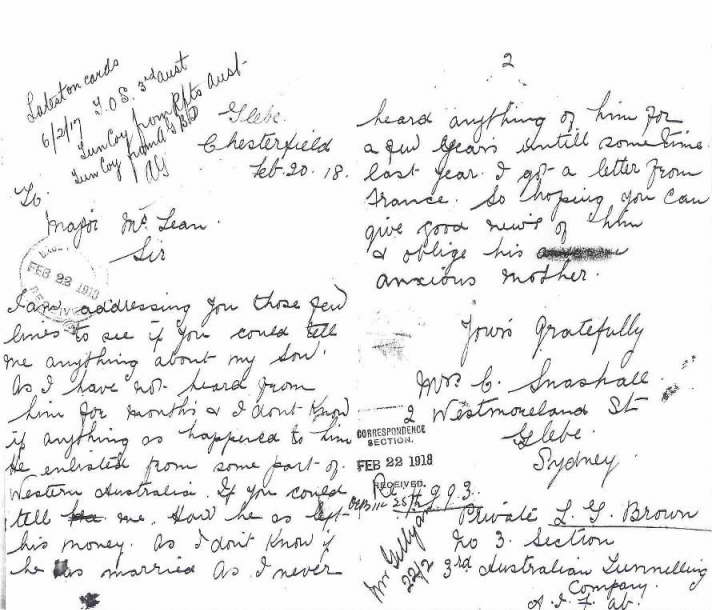 Latest on cards
6/2/17 T.O.S. 3rd Aust
Tun Coy from Rfts Aust
Tun Coy from
Glebe.
Chesterfield
Feb. 20. 18.
To.
Major Mc Lean.
Sir
FEB 22 1918
I am addressing you those few
lines to see if you could tell
me anything about my son.
As I have not heard from
him for months & I dont know
if anything as happened to him
He enlisted from some part of
Western Australia. If you could
tell me. How he as left
his money. As I don't know if
he was married As I never
2
heard anything of him for
a few years untill sometime
last year. I got a letter from
France. So hoping you can
give good news of him
& oblige his
anxious mother.
Yours Gratefully
Mrs C. Snashall.
2 Westmoreland St
Glebe.
Sydney.
CORRESPONDENCE
SECTION.
FEB 22 1918
RECEIVED.
Re
993.
Private L. G. Brown
No 3. Section
3rd Australian Tunnelling
Company.
A. I. F. ab.
22/2